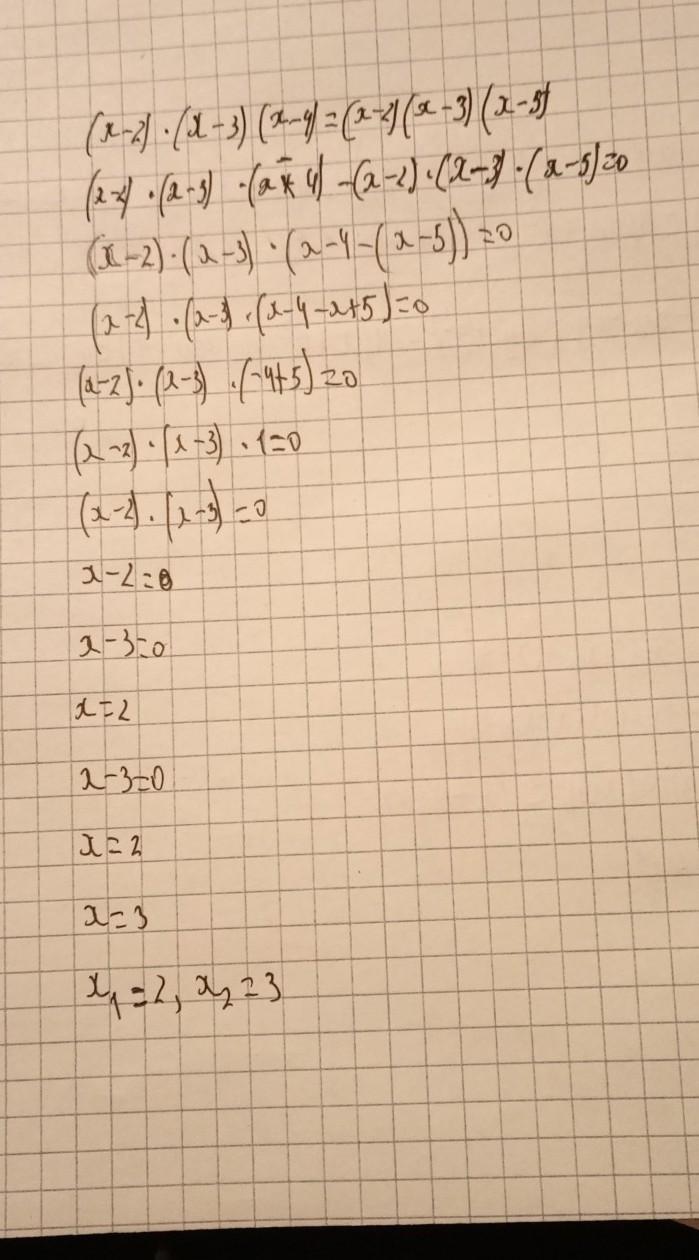 (x-2)·(x-3)(x-4)=(x-2)(x-3)(x-5)
(x-2)·(x-3)·(x-4)-(x-2)·(x-3)·(x-5)=0
(x-2)·(x-3)·(x-4-(x-5))=0
(x-2)·(x-3)·(x-4-x+5)=0
(x-2)·(x-3)·(-4+5)=0
(x-2)·(x-3)·1=0
(x-2)·(x-3)=0
x-2=0
x-3=0
x=2
x-3=0
x=2
x=3
x₁=2, x₂=3